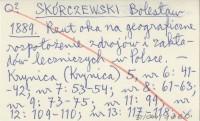 Q2 SKÓRCZEWSKI Bolesław
1889. Rzut oka na geograficzne
rozpołożenie zdrojów i zakła-
dów leczniczych w Polsce. —
Krynica (Krynica) 5, nr 6: 41-
-42; nr 7: 53-54; nr 8: 61-63;
nr 9: 73-75; nr 11: 99; nr
12: 109-110; nr 13: 117-118.